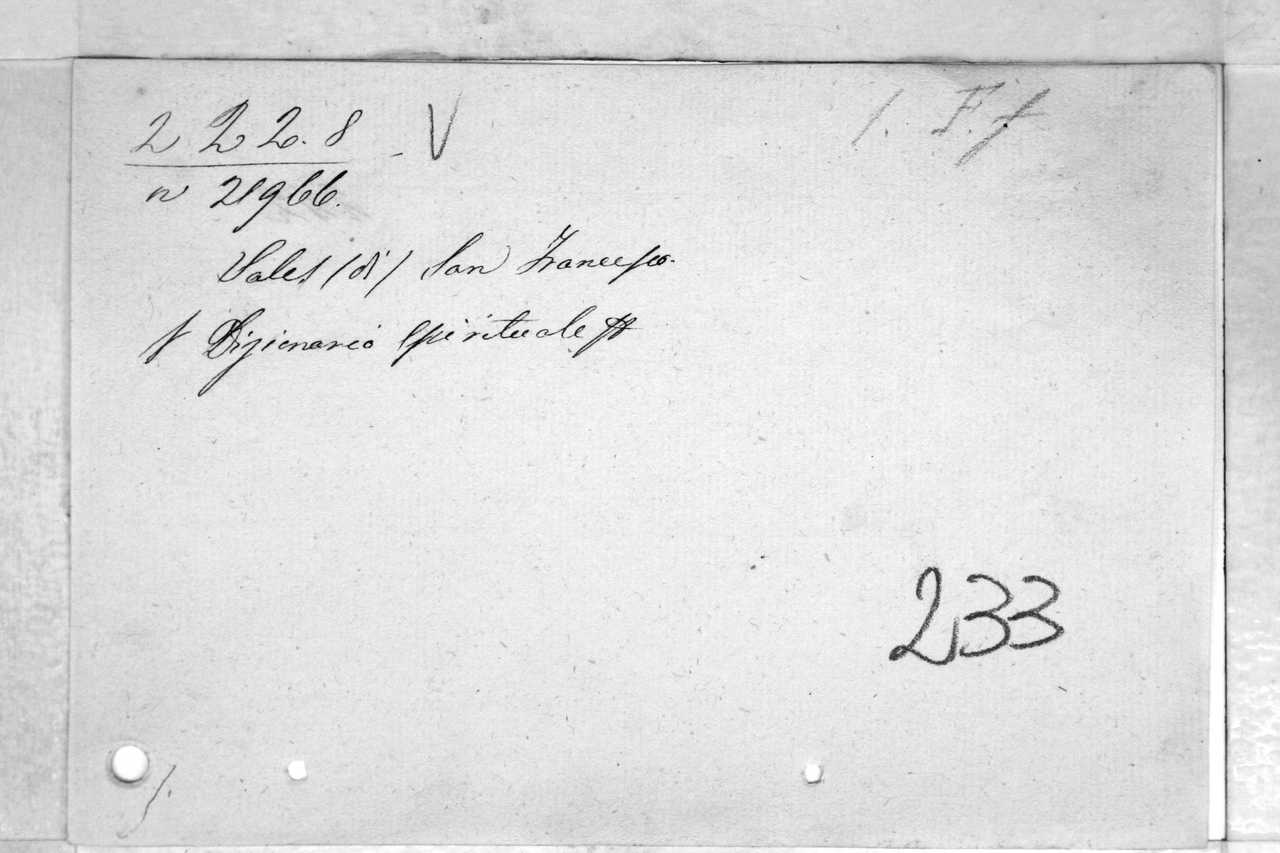 2 2 2. 8 V
n 21966.
Sales (di) San Francesco.
Dizionario Spirituale
233